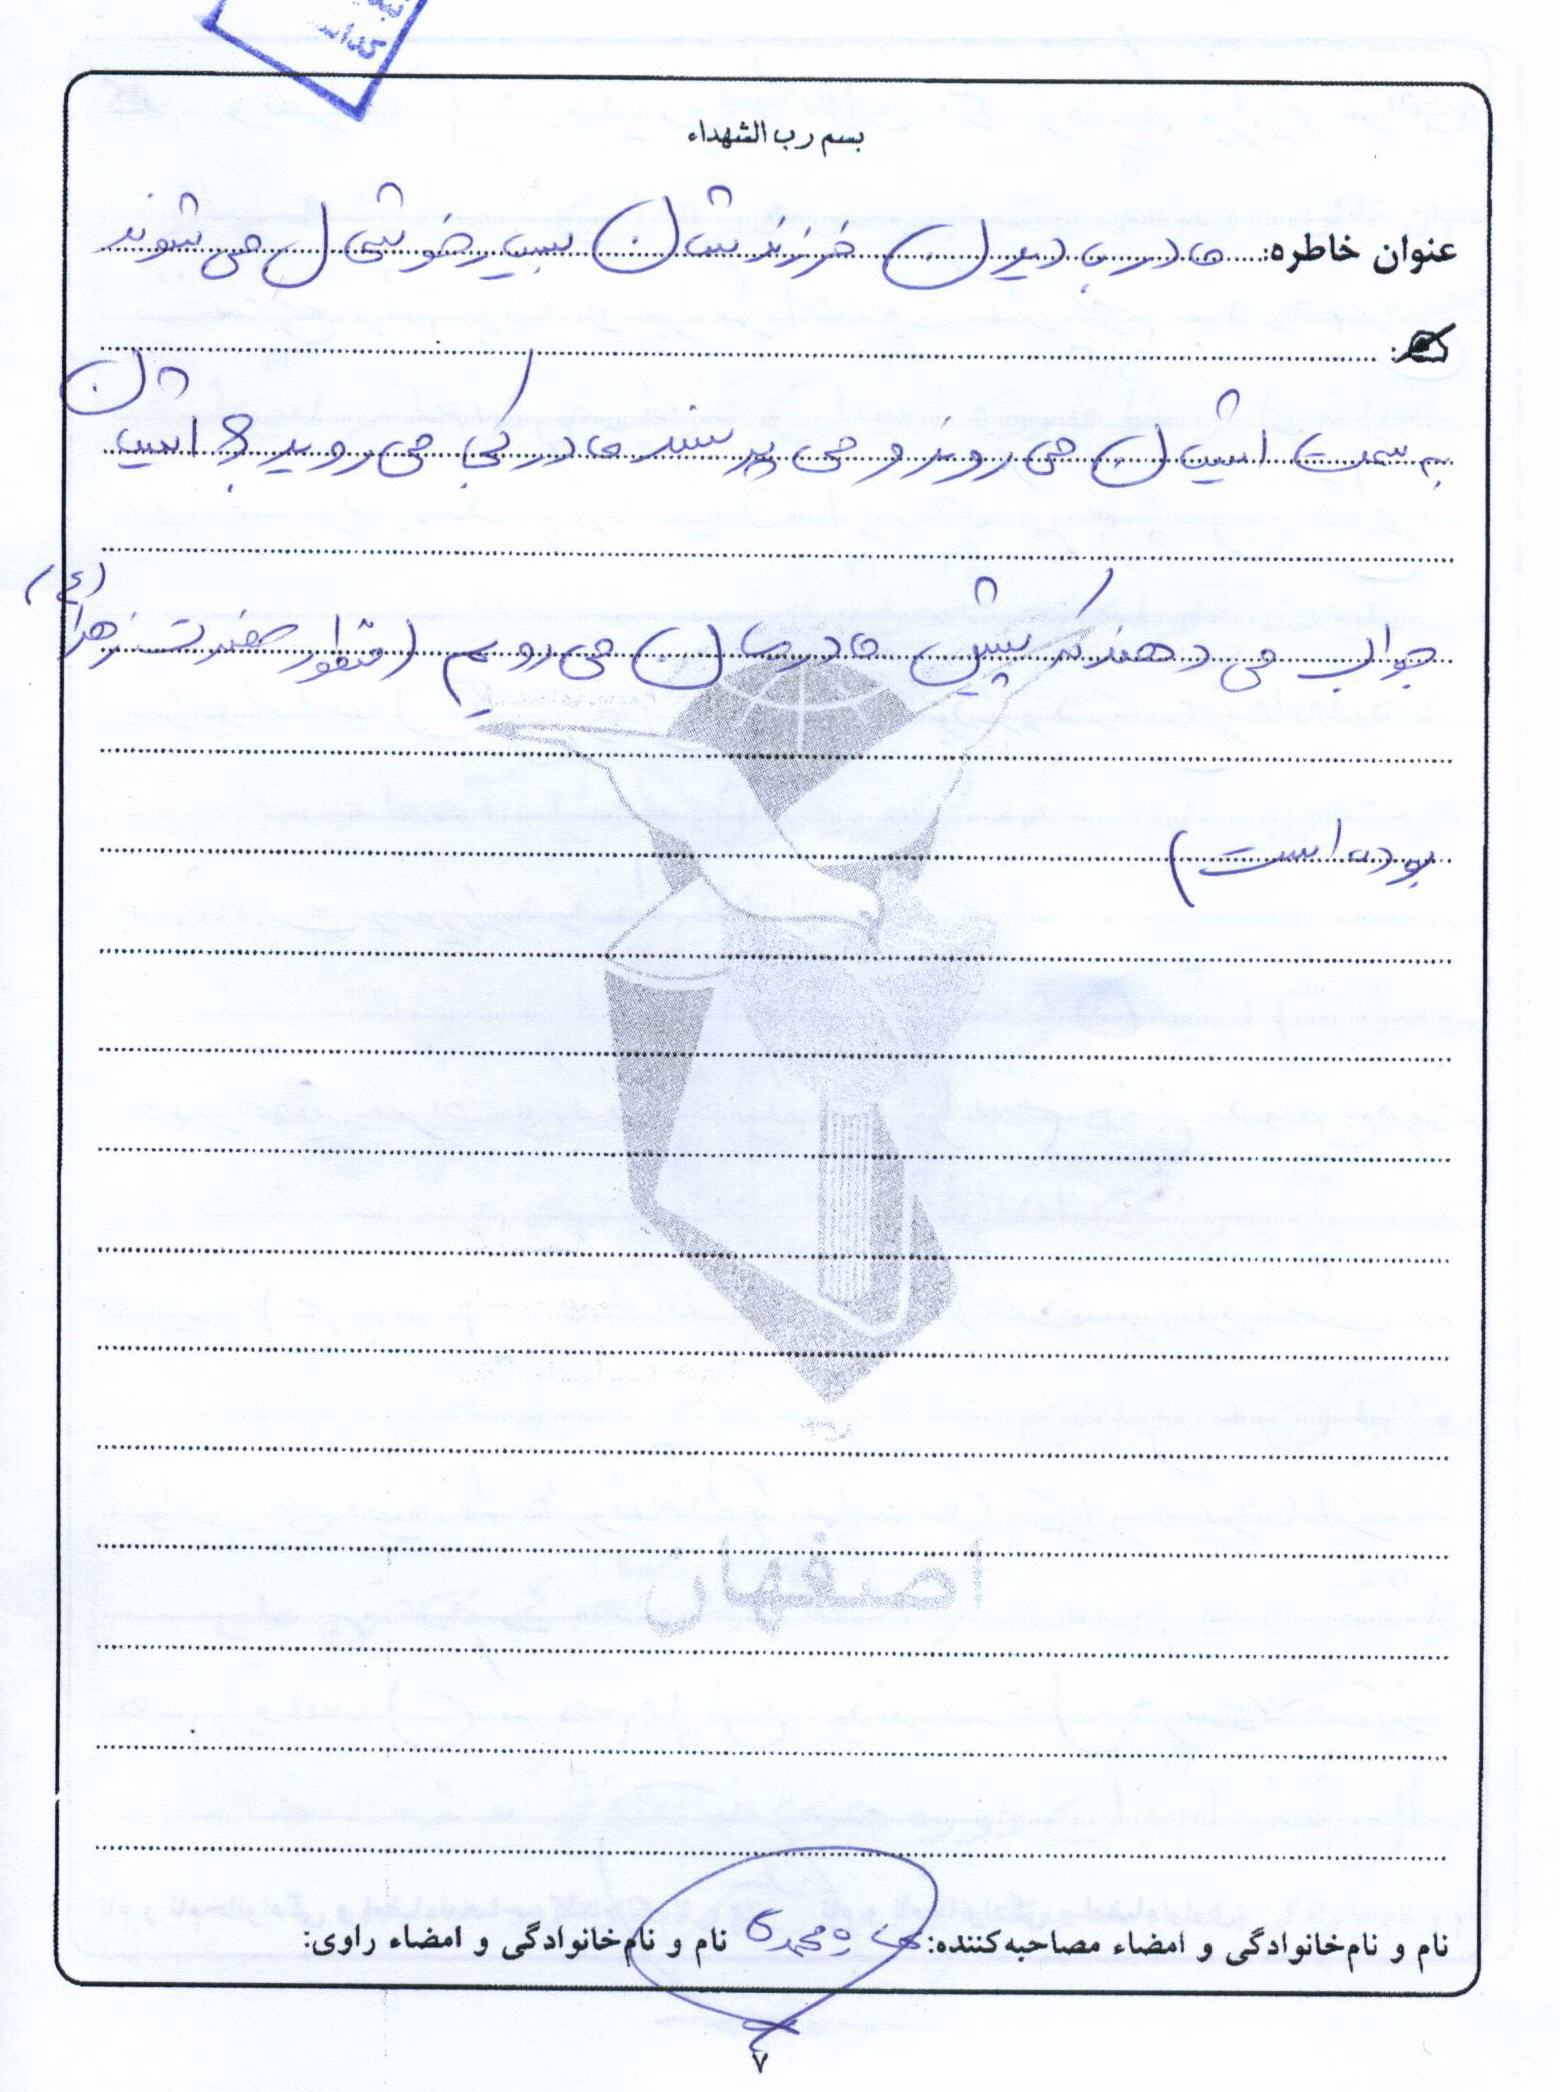 بسم رب الشهداء
عنوان خاطره: مادر با دیدن فرزندشان بسیار خوشحال می شوند
به سمت ایشان می روند و می پرسند مادر کجا می روید؟ ایشان
جواب می دهند که پیش مادرمان می رویم (منظور حضرت زهرا (ع)
بوده است)
اصفهان
نام و نام‌خانوادگی و امضاء مصاحبه‌کننده: محمدی نام و نام‌خانوادگی و امضاء راوی:
۷